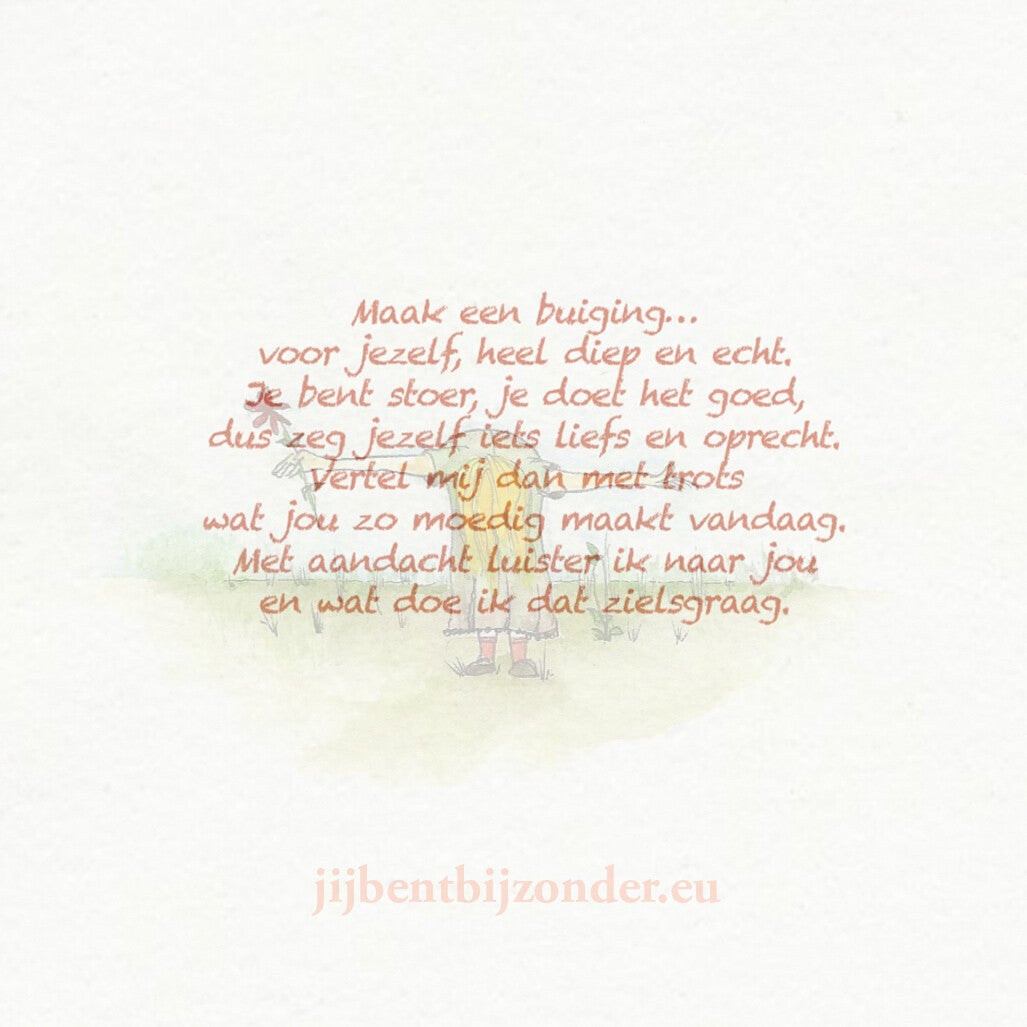 Maak een buiging...
voor jezelf, heel diep en echt.
Je bent stoer, je doet het goed,
dus zeg jezelf iets liefs en oprecht.
Vertel mij dan met trots
wat jou zo moedig maakt vandaag.
Met aandacht luister ik naar jou
en wat doe ik dat zielsgraag.
jijbentbijzonder.eu